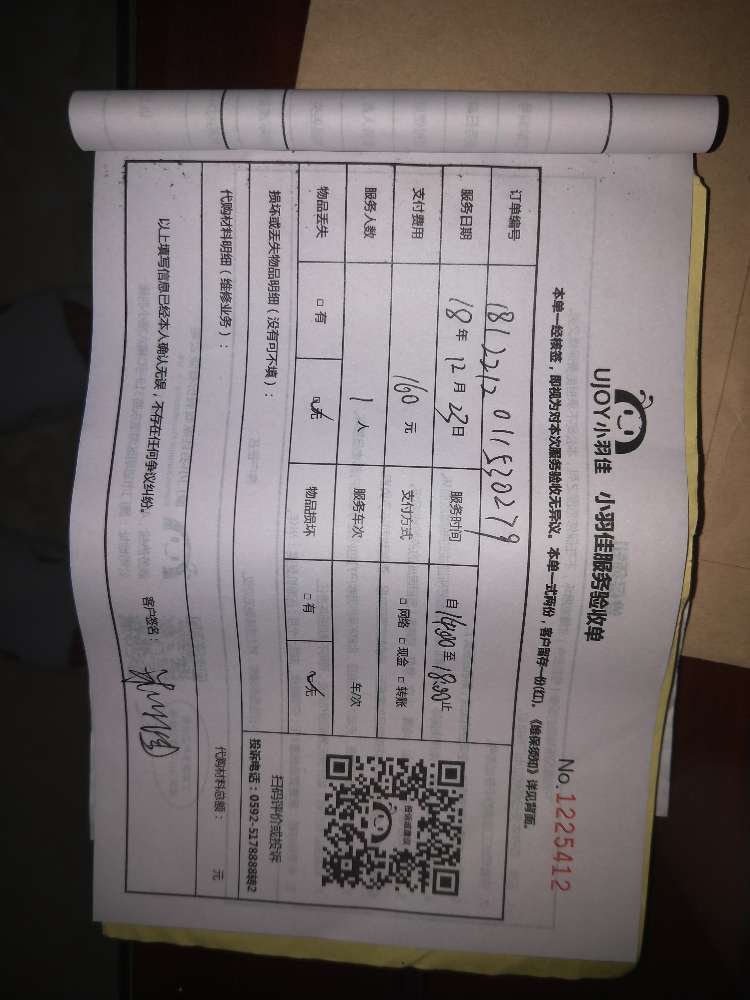 UJOY小羽佳 小羽佳服务验收单
No.1225412
本单一经核签，即视为对本次服务验收无异议。本单一式两份，客户留存一份(红)。《维保须知》详见背面。
订单编号 181221201153 0279
服务日期 18年12月23日 服务时间 自16:00至18:00止
支付费用 160元 支付方式 □网络 □现金 □转账
服务人数 1人 服务车次 车/次
物品丢失 □有 □无 物品损坏 □有 □无
扫码评价或投诉
投诉电话：0592-5178888转82
损坏或丢失物品明细（没有可不填）：
代购材料明细（维修业务）： 代购材料总额： 元
以上填写信息已经本人确认无误，不存在任何争议纠纷。 客户签名：